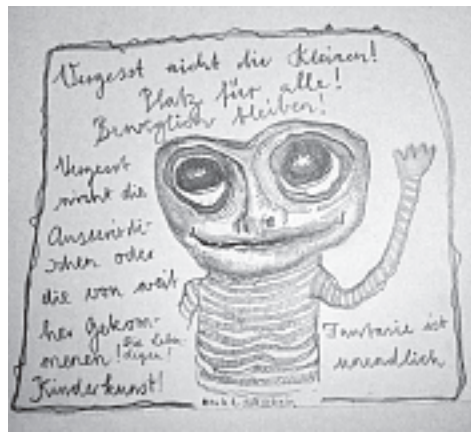 Vergesst nicht die Kleinen!
Platz für alle!
Beweglich bleiben!
Vergesst
nicht die
Ausserirdi-
schen oder
die von weit
her Gekom-
menen! Die Leben-
digen!
Kinderkunst!
Fantasie ist
unendlich